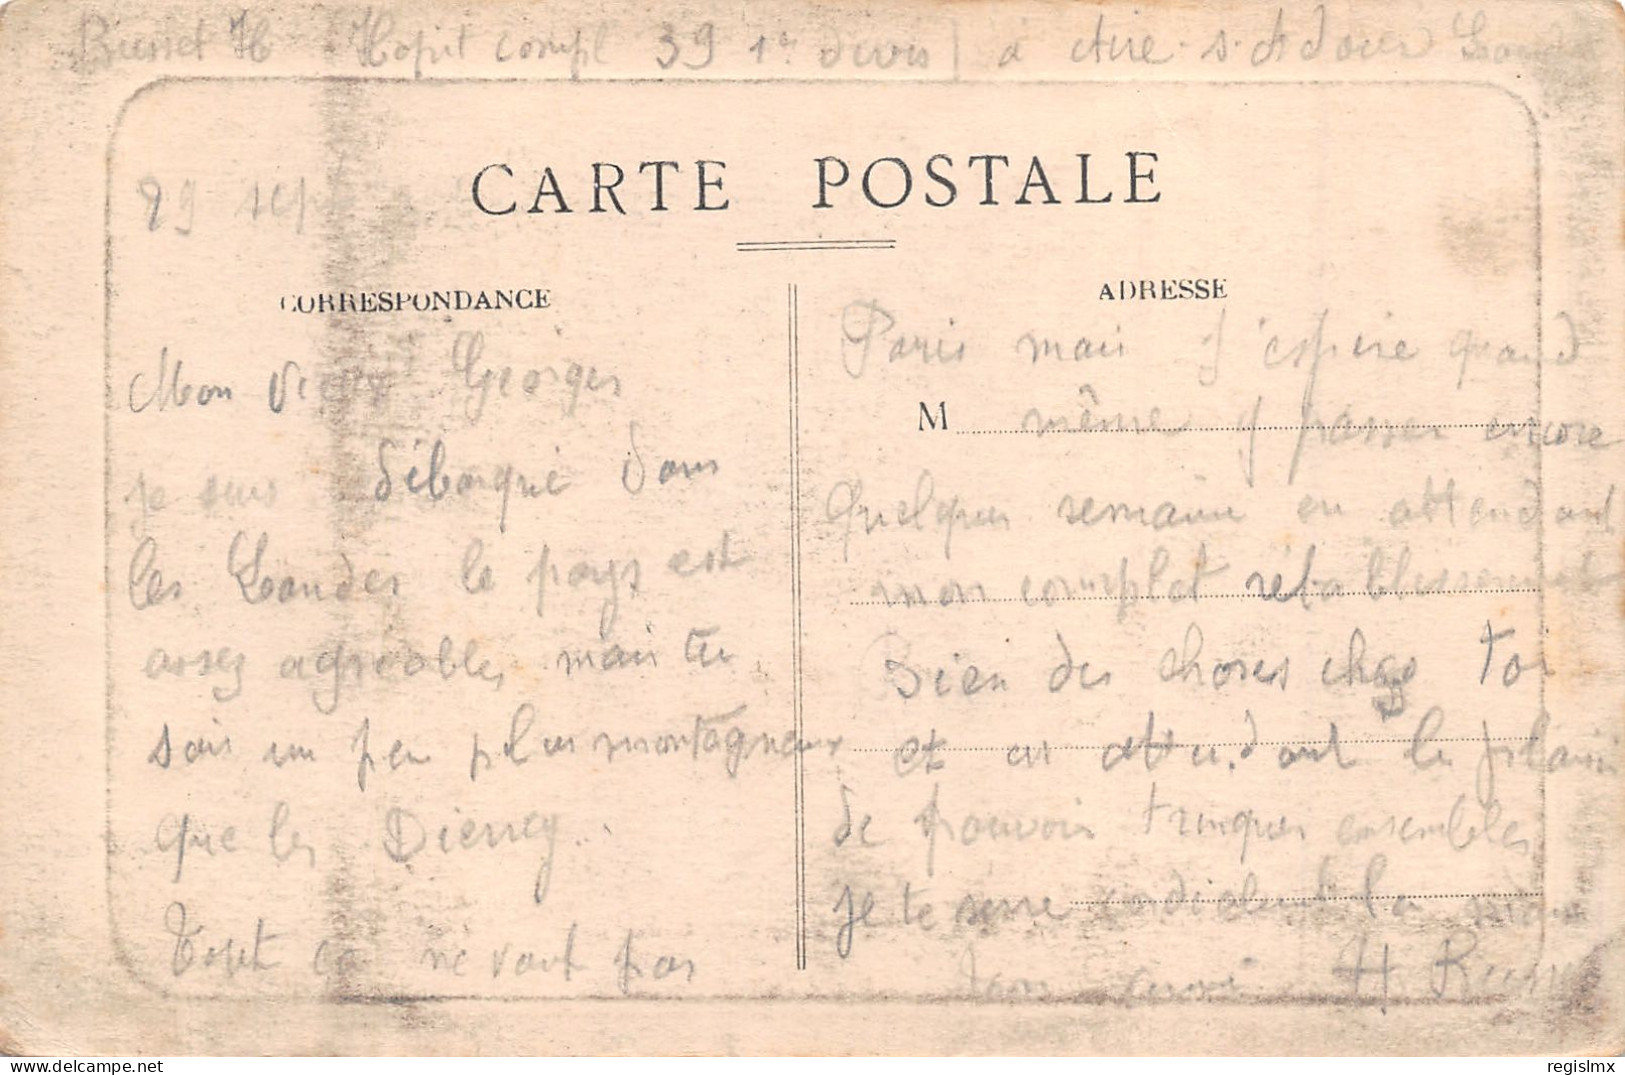 H Hopit compl 39 1e divis à Aire-s-Adour
CARTE POSTALE
29 sep
CORRESPONDANCE
ADRESSE
Mon vieux Georges
je suis débarqué dans
les Landes le pays est
assez agréable, mais tu
sais un peu plus montagneux
que les
Tout ça ne vaut pas
Paris mais j'espère quand
M
même y passer encore
quelques semaine en attendant
mon complet rétablissement
Bien des choses chez toi
et en attendant le plaisir
de pouvoir trinquer ensembles
je te serre cordialement la main
Ton H
regislmx